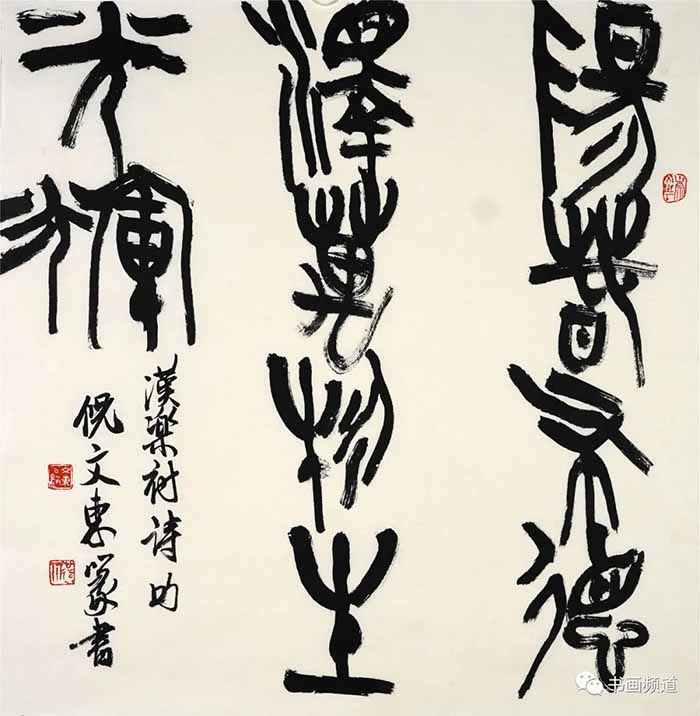 陽春布德
澤萬物生
光輝
漢樂府詩句
倪文東篆書
书画频道